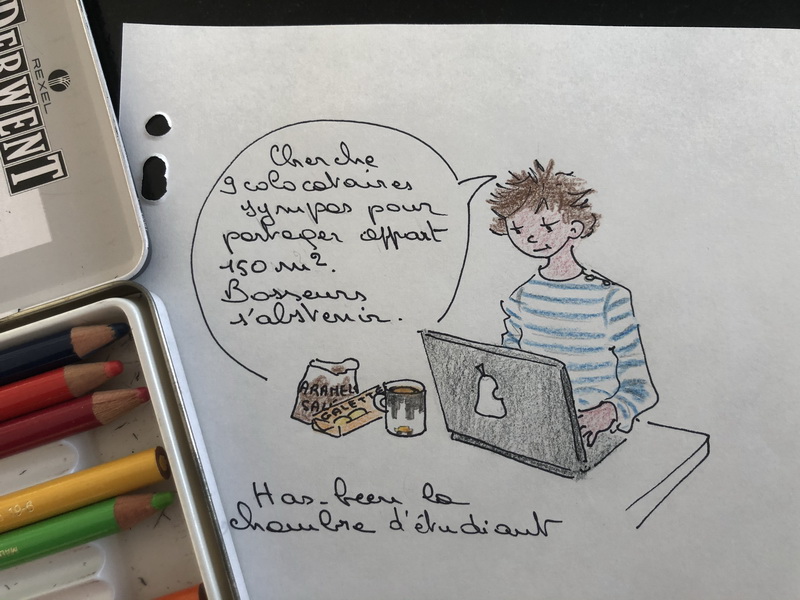 DERWENT
REXEL
Cherche
9 colocataires
sympas pour
partager appart
150 m².
Bosseurs
s'abstenir.
CARAMELS
SALÉ
GALETTES
Has-been la
chambre d'étudiant